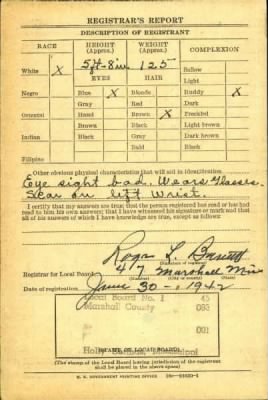 REGISTRAR'S REPORT
DESCRIPTION OF REGISTRANT
RACE HEIGHT (Approx.) WEIGHT (Approx.) COMPLEXION
5 ft-8 in. 125
White X EYES HAIR Sallow
Light
Negro Blue X Blonde Ruddy X
Gray Red Dark
Oriental Hazel Brown X Freckled
Brown Black Light brown
Indian Black Gray Dark brown
Bald Black
Filipino
Other obvious physical characteristics that will aid in identification
Eye sight bad. Wears Glasses.
Scar on left Wrist.
I certify that my answers are true; that the person registered has read or has had
read to him his own answers; that I have witnessed his signature or mark and that
all of his answers of which I have knowledge are true, except as follows:
L.
(Signature of registrar)
Registrar for Local Board 47 Marshall Miss
(Number) (City or county) (State)
Date of registration June 30 - 1942
Local Board No. 1 45
Marshall County 093
001
Mississippi
(STAMP OF LOCAL BOARD)
(The stamp of the Local Board having jurisdiction of the registrant
shall be placed in the above space.)
U. S. GOVERNMENT PRINTING OFFICE